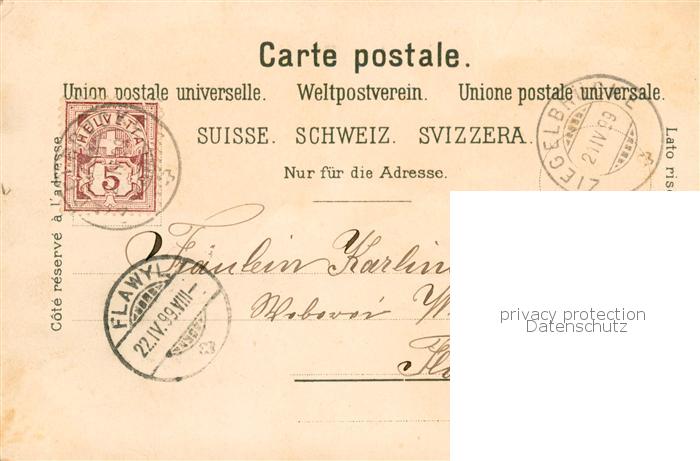 Carte postale.
Union postale universelle. Weltpostverein. Unione postale universale.
SUISSE. SCHWEIZ. SVIZZERA.
Nur für die Adresse.
Côté réservé à l'adresse
Lato rise
HELVETIA
5
ZIEGELBRÜCKE
21 IV 99
FLAWYL
22.IV.99.VIII–
Fräulein Karlin
Weberei W
Fla
privacy protection
Datenschutz